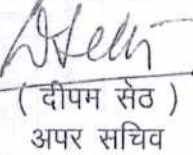 ( दीपम सेठ )
अपर सचिव